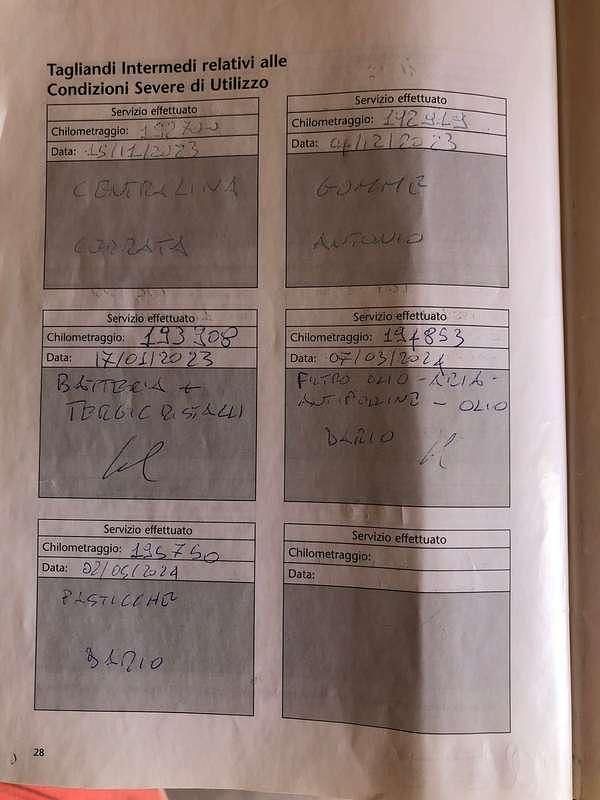 Tagliandi Intermedi relativi alle
Condizioni Severe di Utilizzo
Servizio effettuato
Chilometraggio: 192700
Data: 15/11/2023
CENTRALINA
CORRATA
Servizio effettuato
Chilometraggio: 192919
Data: 04/12/2023
GOMME
ANTONIO
Servizio effettuato
Chilometraggio: 193908
Data: 17/01/2023
BATTERIA +
TERGICRISTALLI
Servizio effettuato
Chilometraggio: 194853
Data: 07/03/2024
FILTRO OLIO - ARIA -
ANTIPOLLINE - OLIO
DARIO
Servizio effettuato
Chilometraggio: 195750
Data: 02/05/2024
PASTICCHE
DARIO
Servizio effettuato
Chilometraggio:
Data:
28